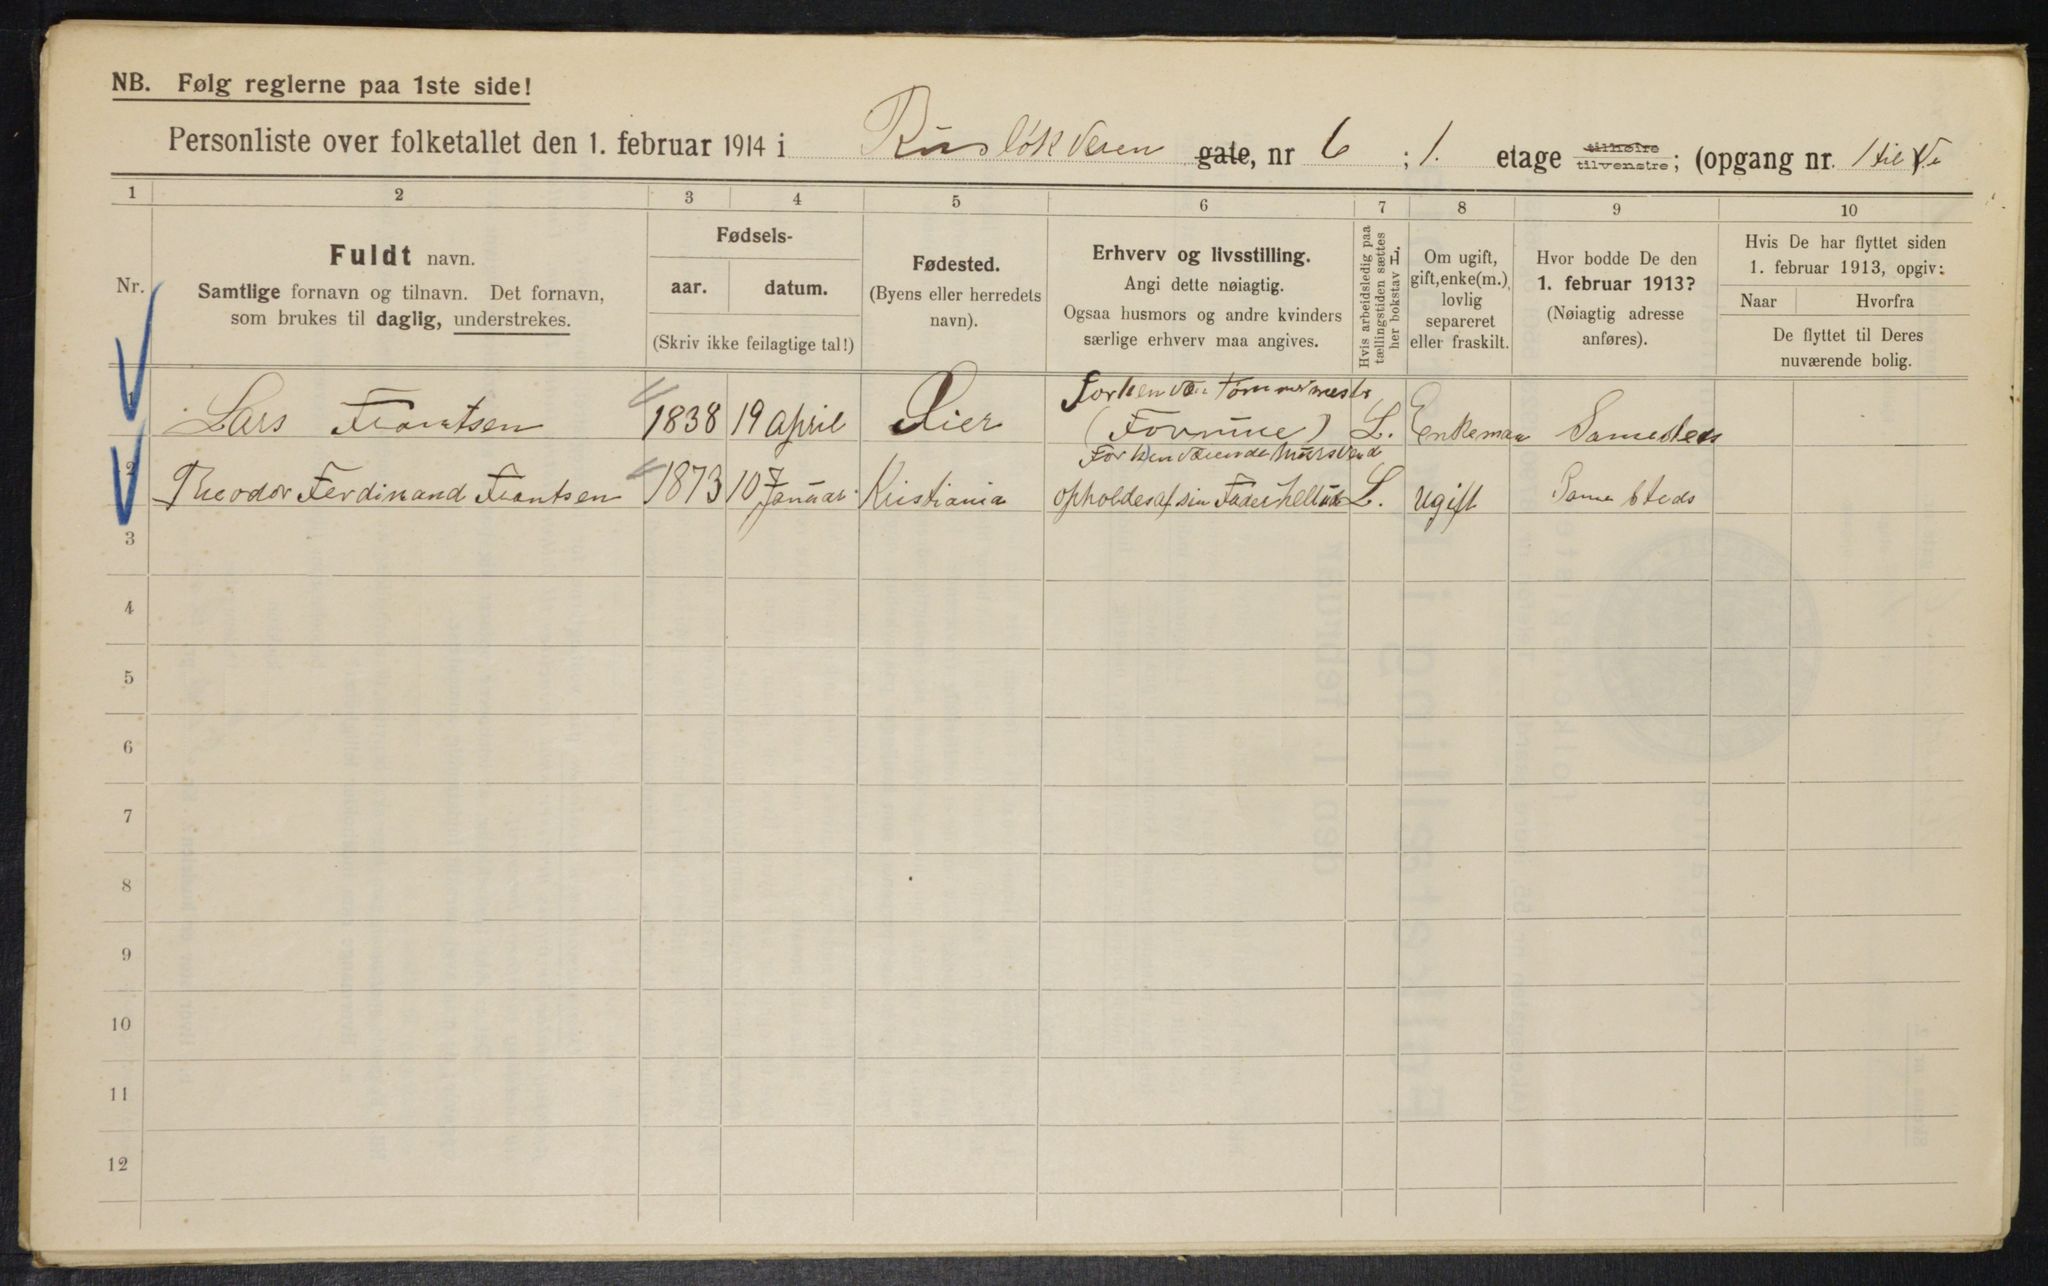 NB. Følg reglerne paa 1ste side!
Personliste over folketallet den 1. februar 1914 i Rusløkveien gate, nr 6 ; 1. etage tilhøire tilvenstre; (opgang nr. 1 til V
1 2 3 4 5 6 7 8 9 10
Nr.
Fuldt navn.
Samtlige fornavn og tilnavn. Det fornavn,
som brukes til daglig, understrekes.
Fødsels-
aar. datum.
(Skriv ikke feilagtige tal!)
Fødested.
(Byens eller herredets
navn).
Erhverv og livsstilling.
Angi dette nøiagtig.
Ogsaa husmors og andre kvinders
særlige erhverv maa angives.
Hvis arbeidsledig paa
tællingstiden sættes
her bokstav L.
Om ugift,
gift, enke(m.),
lovlig
separeret
eller fraskilt.
Hvor bodde De den
1. februar 1913?
(Nøiagtig adresse
anføres).
Hvis De har flyttet siden
1. februar 1913, opgiv:
Naar Hvorfra
De flyttet til Deres
nuværende bolig.
forhenvær. Tømmermester
1 Lars Frantsen 1838 19 April (Formue) L. Enkeman Samesteds
Forhenværende Mursvend
2 Theodor Ferdinand Frantsen 1873 10 Januar Kristiania opholdes af sin Fader L. ugift Samesteds
3
4
5
6
7
8
9
10
11
12